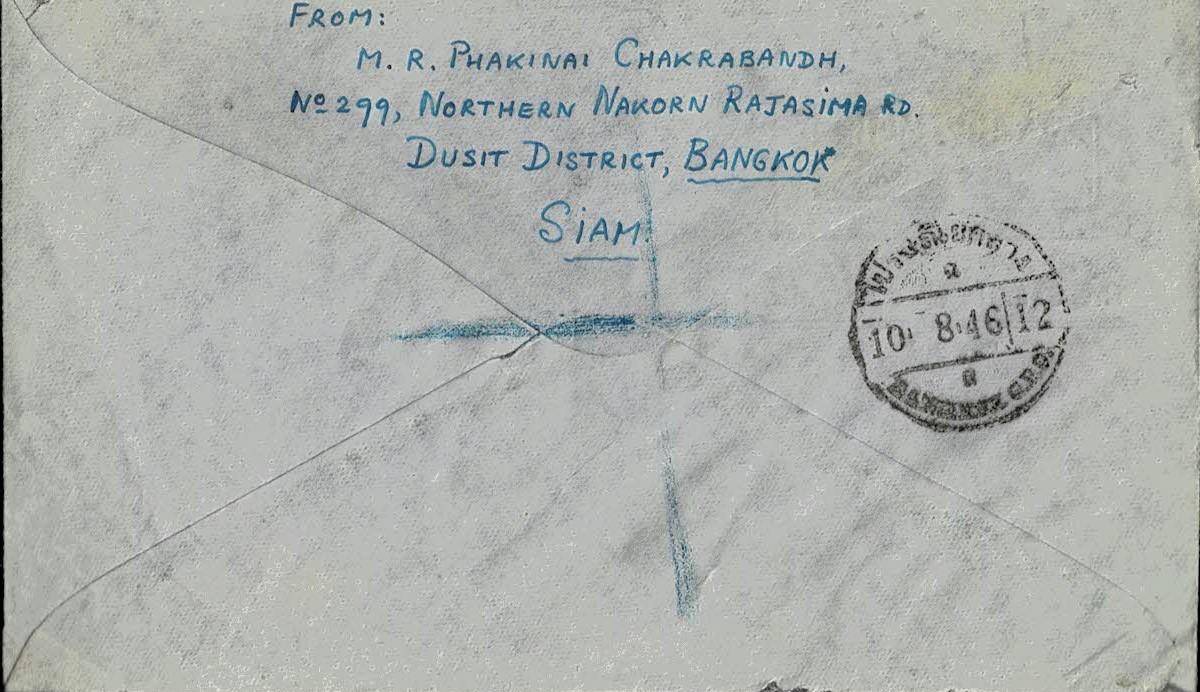 FROM:
M. R. PHAKINAI CHAKRABANDH,
Nº 299, NORTHERN NAKORN RAJASIMA RD.
DUSIT DISTRICT, BANGKOK
SIAM.
ไปรษณีย์กลาง
10. 8.46 12
G.P.O.